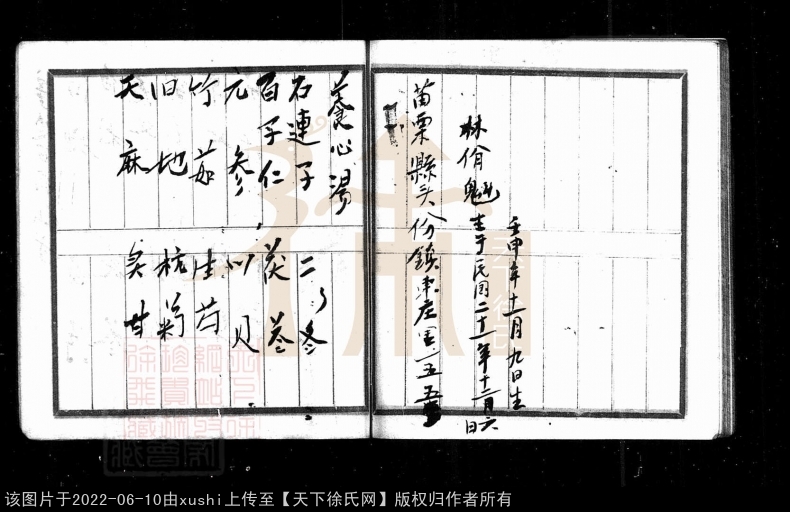 壬申年十一月九日生
林佾魁 生于民国二十一年十二月六日
苗栗縣头份鎮東庄里一五五号
養心湯
石連子 二冬
百子仁 茯苓
元参 川贝
竹茹 生芍
旧地 杭菊
天麻 炙甘
该图片于2022-06-10由xushi上传至【天下徐氏网】版权归作者所有